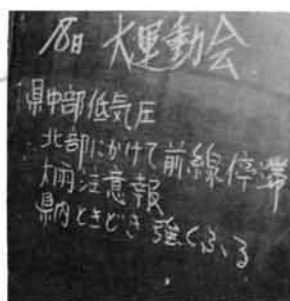 18日 大運動会
県中部低気圧
北部にかけて前線停滞
大雨注意報
県内ときどき強くふる